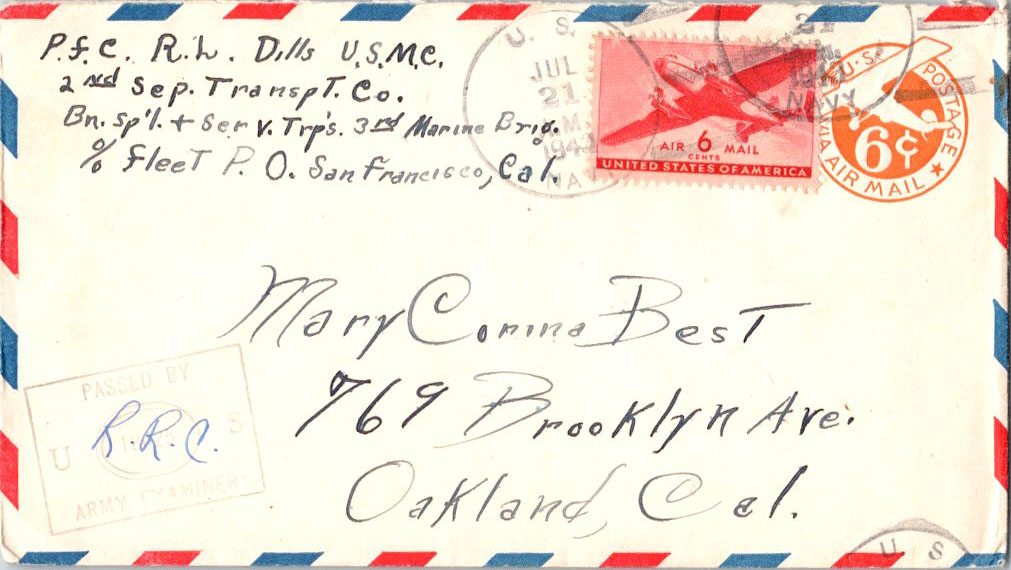 P.f.C. R.L. Dills U.S.M.C.
2nd Sep. Transpt. Co.
Bn. Sp'l. + Serv. Trp's. 3rd Marine Brig.
% Fleet P. O. San Francisco, Cal.
U. S.
JUL
21
NAVY
AIR 6 MAIL
CENTS
UNITED STATES OF AMERICA
21
NAVY
U.S. POSTAGE
6¢
VIA AIR MAIL
Mary Corina Best
769 Brooklyn Ave.
Oakland, Cal.
PASSED BY
U S
R.R.C.
ARMY EXAMINER
U S